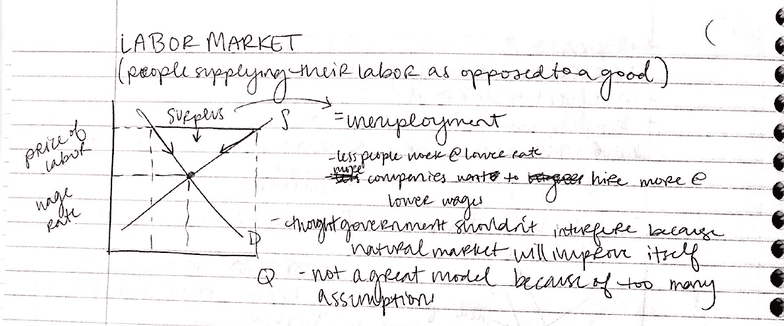 LABOR MARKET
(people supplying their labor as opposed to a good)
surplus
S
price of
labor
wage
rate
D
Q
=unemployment
-less people work @ lower rate
more companies want to hire more @
lower wages
- thought government shouldn't interfere because
natural market will improve itself
- not a great model because of too many
assumptions